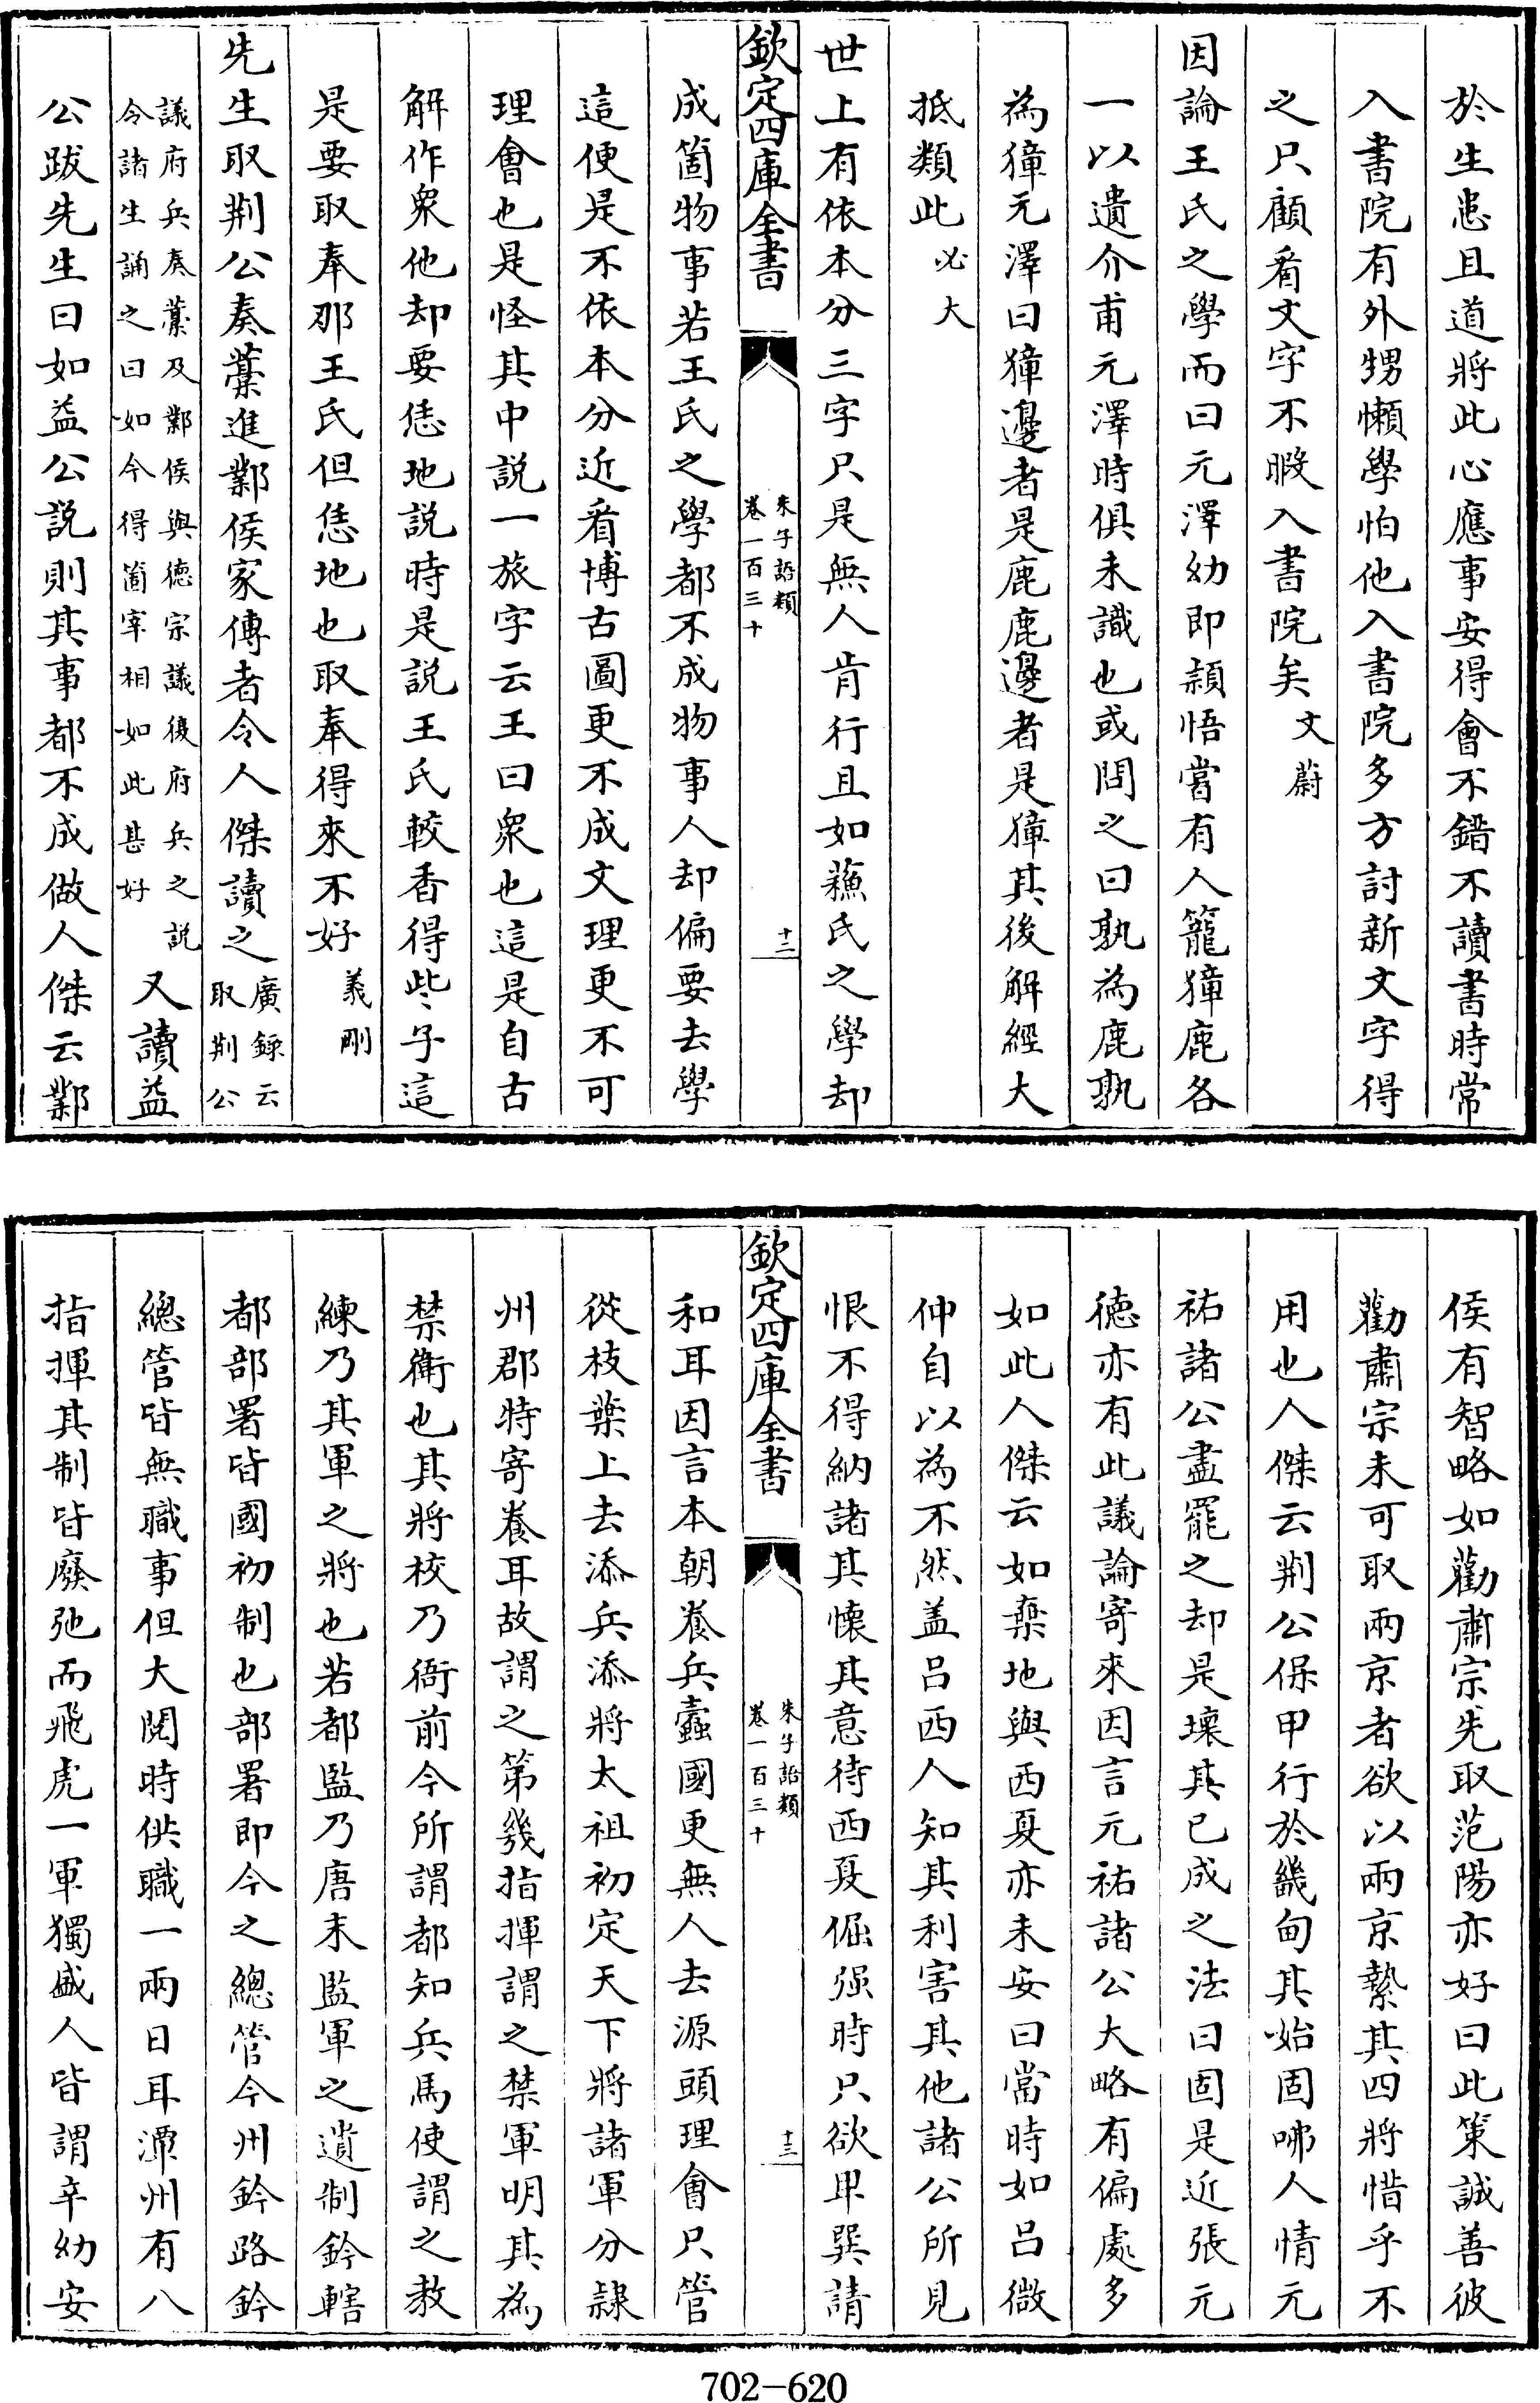 於生患且道將此心應事安得會不錯不讀書時常
入書院有外甥懶學怕他入書院多方討新文字得
之只顧看文字不暇入書院矣文蔚
因論王氏之學而曰元澤幼即頴悟嘗有人籠獐鹿各
一以遺介甫元澤時俱未識也或問之曰孰為鹿孰
為獐元澤曰獐邊者是鹿鹿邊者是獐其後解經大
抵類此必大
世上有依本分三字只是無人肯行且如蘇氏之學却
欽定四庫全書
朱子語類
卷一百三十
十二
成箇物事若王氏之學都不成物事人却偏要去學
這便是不依本分近看博古圖更不成文理更不可
理會也是怪其中説一旅字云王曰衆也這是自古
解作衆他却要恁地説時是説王氏較香得些子這
是要取奉那王氏但恁地也取奉得來不好義剛
先生取荆公奏藳進鄴侯家傳者令人傑讀之廣録云
取荆公
議府兵奏藳及鄴侯與徳宗議復府兵之説
令諸生誦之曰如今得箇宰相如此甚好又讀益
公跋先生曰如益公説則其事都不成做人傑云鄴
侯有智略如勸肅宗先取范陽亦好曰此策誠善彼
勸肅宗未可取兩京者欲以兩京縶其四將惜乎不
用也人傑云荆公保甲行於畿甸其始固咈人情元
祐諸公盡罷之却是壊其已成之法曰固是近張元
徳亦有此議論寄來因言元祐諸公大略有偏處多
如此人傑云如棄地與西夏亦未安曰當時如吕微
仲自以為不然盖吕西人知其利害其他諸公所見
恨不得納諸其懷其意待西夏倔强時只欲卑巽請
欽定四庫全書
朱子語類
卷一百三十
十三
和耳因言本朝養兵蠧國更無人去源頭理會只管
從枝葉上去添兵添將太祖初定天下將諸軍分隷
州郡特寄養耳故謂之第幾指揮謂之禁軍明其為
禁衛也其將校乃衙前今所謂都知兵馬使謂之教
練乃其軍之將也若都監乃唐末監軍之遺制鈐轄
都部署皆國初制也部署即今之總管今州鈐路鈐
總管皆無職事但大閱時供職一兩日耳潭州有八
指揮其制皆廢弛而飛虎一軍獨盛人皆謂辛幼安
702-620